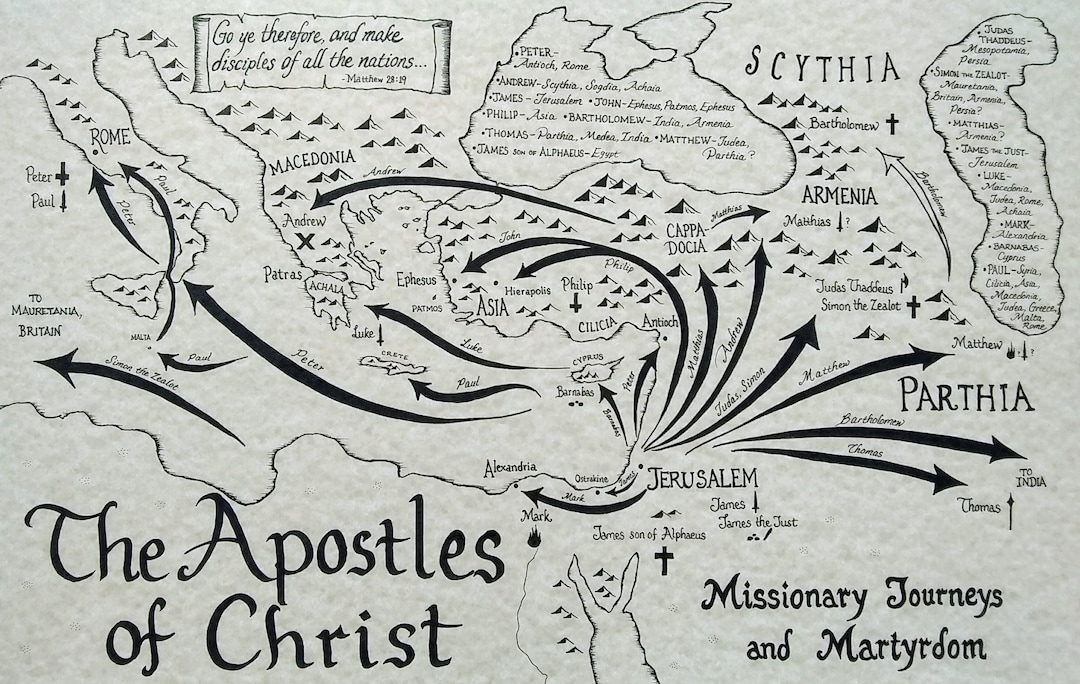 Go ye therefore, and make
disciples of all the nations...
-Matthew 28:19
•PETER-
Antioch, Rome
•ANDREW-Scythia, Sogdia, Achaia
•JAMES - Jerusalem •JOHN-Ephesus, Patmos, Ephesus
•PHILIP-Asia •BARTHOLOMEW-India, Armenia
•THOMAS-Parthia, Medea, India •MATTHEW-Judea,
Parthia?
•JAMES SON OF ALPHAEUS-Egypt
SCYTHIA
•JUDAS
THADDEUS-
Mesopotamia,
Persia
•SIMON THE ZEALOT-
Mauretania,
Britain, Armenia,
Persia?
•MATTHIAS-
Armenia?
•JAMES THE JUST-
Jerusalem
•LUKE-
Macedonia,
Judea, Rome,
Achaia
•MARK-
Alexandria
•BARNABAS-
Cyprus
•PAUL-Syria,
Cilicia, Asia,
Macedonia,
Judea, Greece,
Malta,
Rome
ROME
Peter
Paul
Paul
Peter
MACEDONIA
Andrew
Andrew
Bartholomew
Bartholomew
ARMENIA
Matthias ?
Matthias
CAPPA-
DOCIA
John
Philip
Patras
ACHAIA
Ephesus
PATMOS
ASIA
Hierapolis
Philip
CILICIA
Antioch
Judas Thaddeus
Simon the Zealot
TO
MAURETANIA,
BRITAIN
MALTA
Paul
Simon the Zealot
Peter
Luke
Luke
CRETE
Paul
CYPRUS
Barnabas
Barnabas
Peter
Matthias
Andrew
Judas, Simon
Matthew
Matthew ?
PARTHIA
Bartholomew
Thomas
TO
INDIA
Thomas
Alexandria
Ostrakine
James
Mark
Mark
JERUSALEM
James
James the Just
James son of Alphaeus
The Apostles
of Christ
Missionary Journeys
and Martyrdom